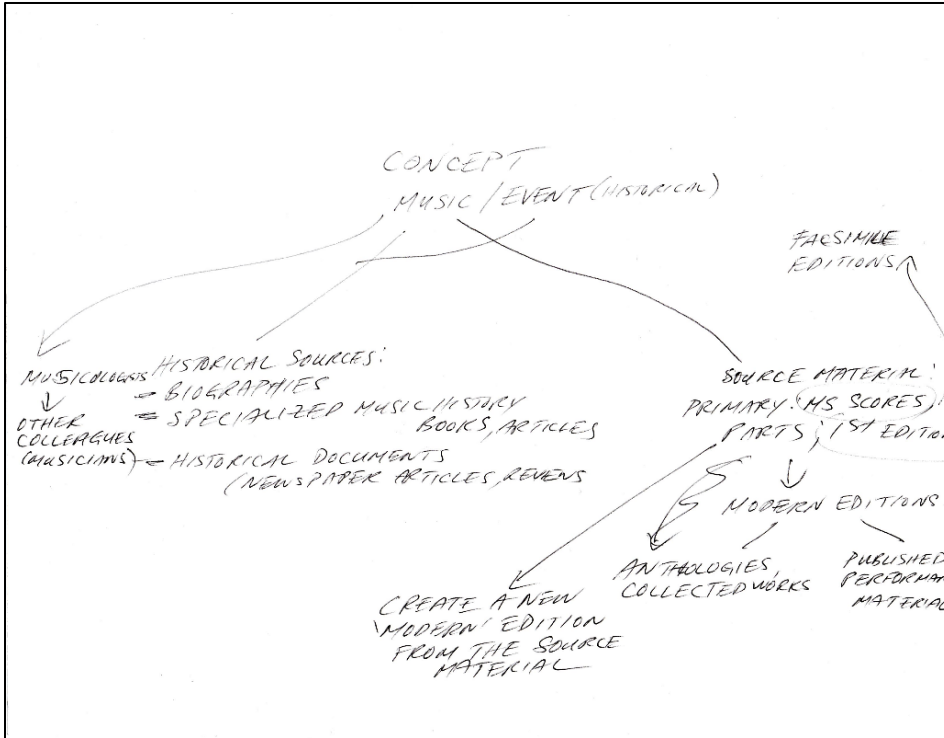 CONCEPT
MUSIC / EVENT (HISTORICAL)
FACSIMILE
EDITIONS
MUSICOLOGISTS
OTHER
COLLEAGUES
(MUSICIANS)
HISTORICAL SOURCES:
- BIOGRAPHIES
- SPECIALIZED MUSIC HISTORY
BOOKS, ARTICLES
- HISTORICAL DOCUMENTS
(NEWSPAPER ARTICLES,
SOURCE MATERIAL:
PRIMARY: MS SCORES,
PARTS; 1ST EDITION
MODERN EDITIONS
ANTHOLOGIES,
COLLECTED WORKS
PUBLISHED
PERFORMA
MATERIAL
CREATE A NEW
'MODERN' EDITION
FROM THE SOURCE
MATERIAL